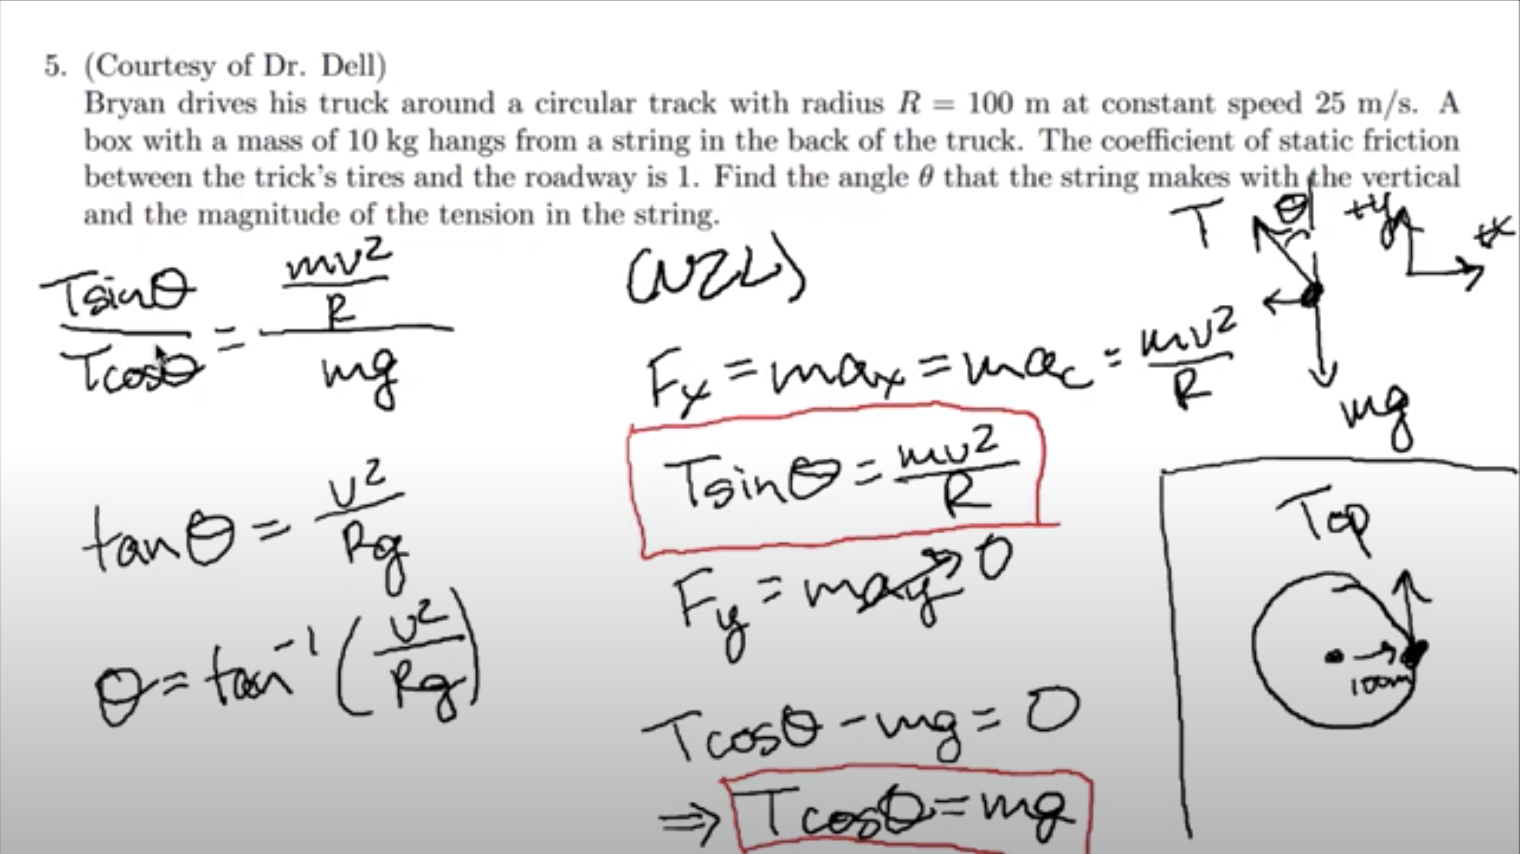 5. (Courtesy of Dr. Dell)
Bryan drives his truck around a circular track with radius R = 100 m at constant speed 25 m/s. A
box with a mass of 10 kg hangs from a string in the back of the truck. The coefficient of static friction
between the trick's tires and the roadway is 1. Find the angle θ that the string makes with the vertical
and the magnitude of the tension in the string.
T θ +y +x
mg
Tsinθ/Tcosθ = (mv²/R)/mg
tanθ = v²/Rg
θ = tan⁻¹(v²/Rg)
(N2L)
Fx = max = mac = mv²/R
Tsinθ = mv²/R
Fy = may → 0
Tcosθ - mg = 0
⇒ Tcosθ = mg
Top
100m